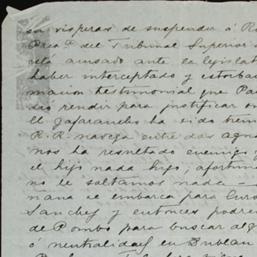 en vísperas de suspender á R
del Tribunal Superior
acusado ante la legislat
haber interceptado y estorba
macion testimonial que Pa
rendir para justificar
Gafarancho ha sido
R. R. navega entre dos agu
nos ha resultado enemigo y
el hijo nada hijo; afortun
no le soltamos nada —
mana se embarca para Euro
Sanchez y entonces podre
de Pombo para buscar al
ó neutralidad en Dublan